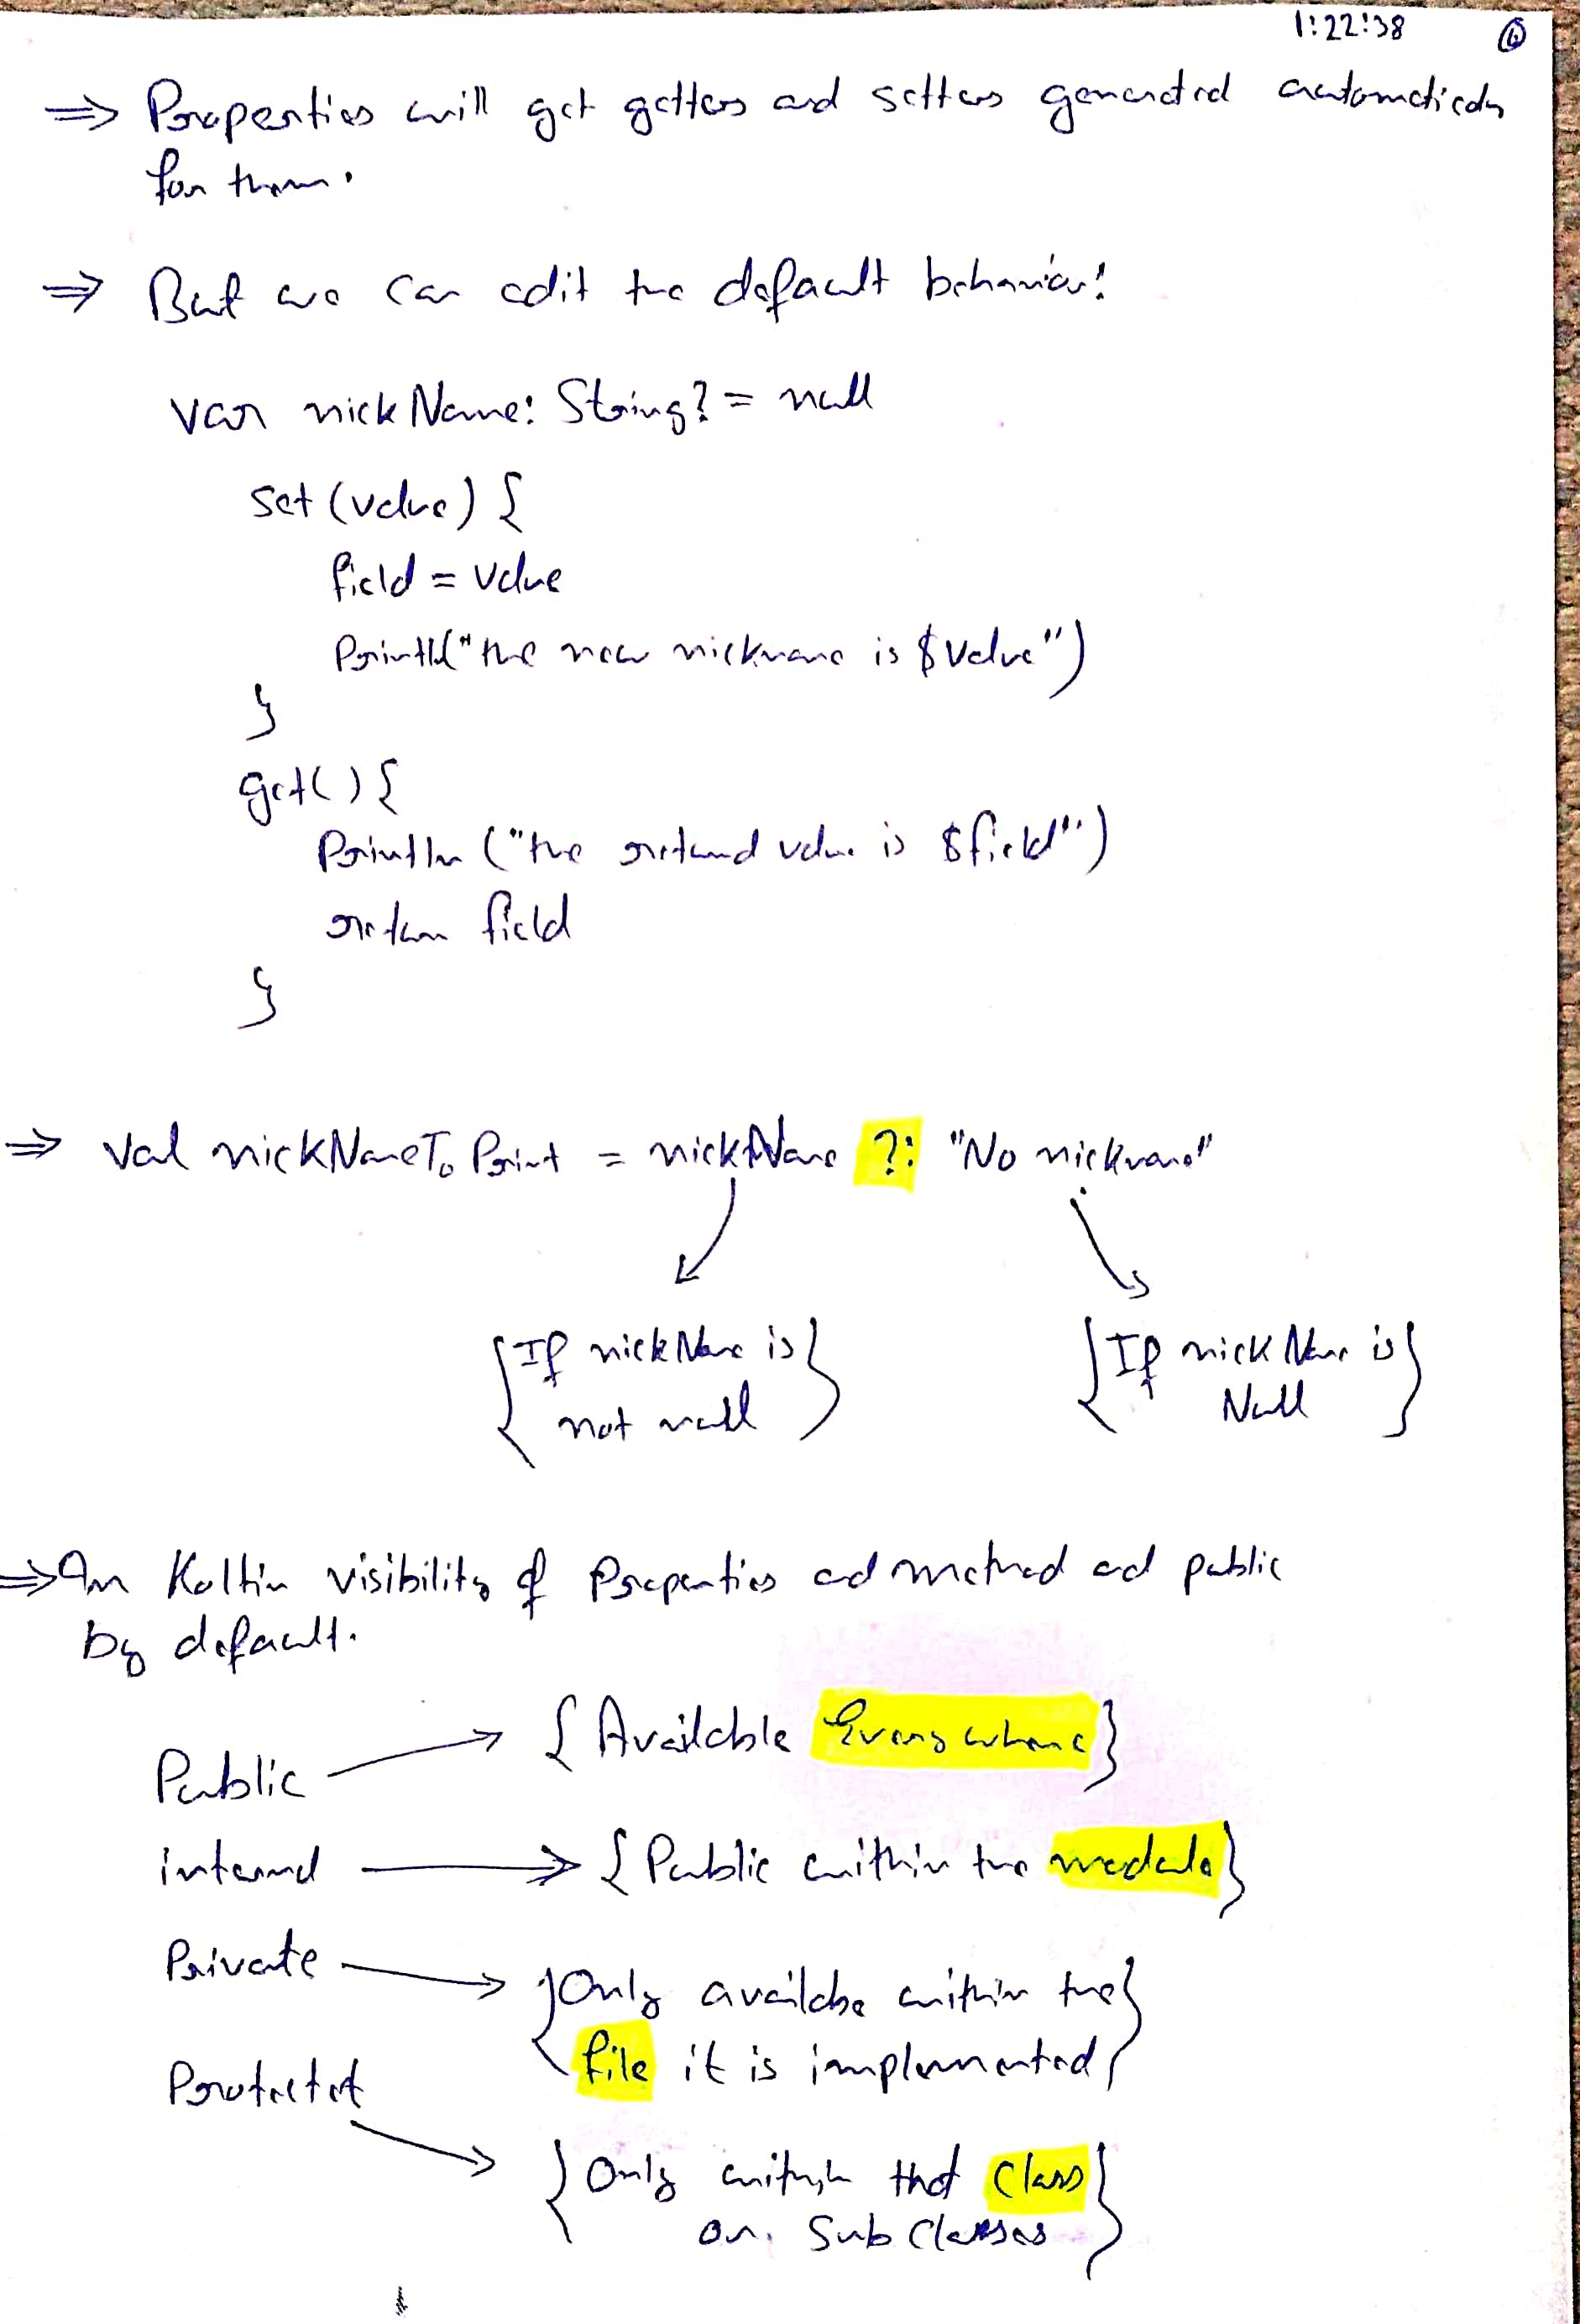 1:22:38 6
⇒ Properties will get getters and setters generated automatically
for them.
⇒ But we can edit the default behavior!
var nickName: String? = null
set (value) {
field = value
Println("the new nickname is $value")
}
get() {
Println ("the returned value is $field")
return field
}
⇒ val nickNameToPrint = nickName ?: "No nickname"
{If nickName is {If nickName is}
not null} Null
⇒ In Koltin visibility of Properties and method ad public
by default.
Public → {Available Everywhere}
internal → {Public within the module}
Private → {Only availabe within the}
file it is implemented
Protectet
→ {Only within that class}
or. Sub Classes